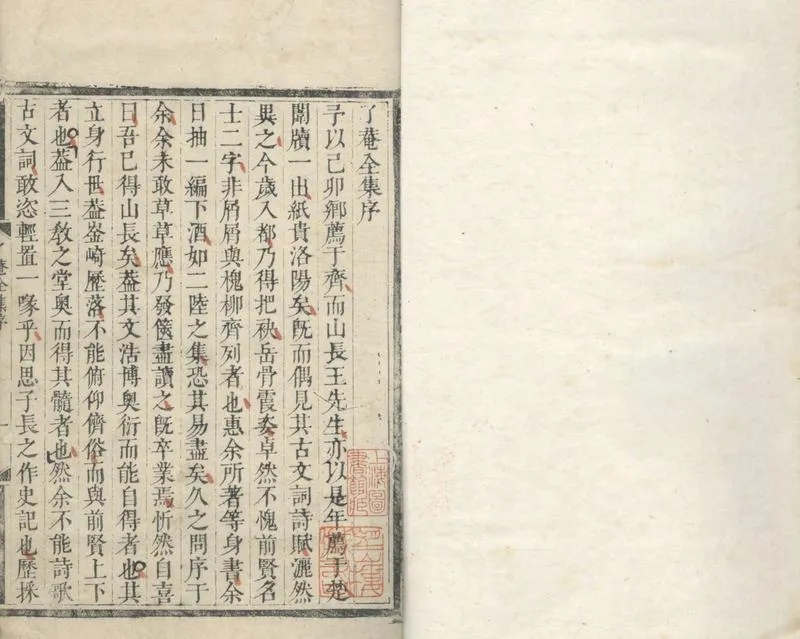 了菴全集序
予以己卯鄉薦于齊而山長王先生亦以是年薦于楚
闈牘一出紙貴洛陽矣既而偶見其古文詞詩賦灑然
異之今歲入都乃得把袂岳骨霞姿卓然不愧前賢名
士二字非屑屑與槐柳齊列者也惠余所著等身書余
日抽一編下酒如二陸之集恐其易盡矣久之問序于
余余未敢草草應乃發篋盡讀之既卒業焉忻然自喜
曰吾已得山長矣葢其文浩博奧衍而能自得者也其
立身行世葢崟崎歷落不能俯仰儕俗而與前賢上下
者也葢入三教之堂奧而得其髓者也然余不能詩歌
古文詞敢恣輕置一喙乎因思子長之作史記也歷採
菴全集序
一
上海圖書館藏